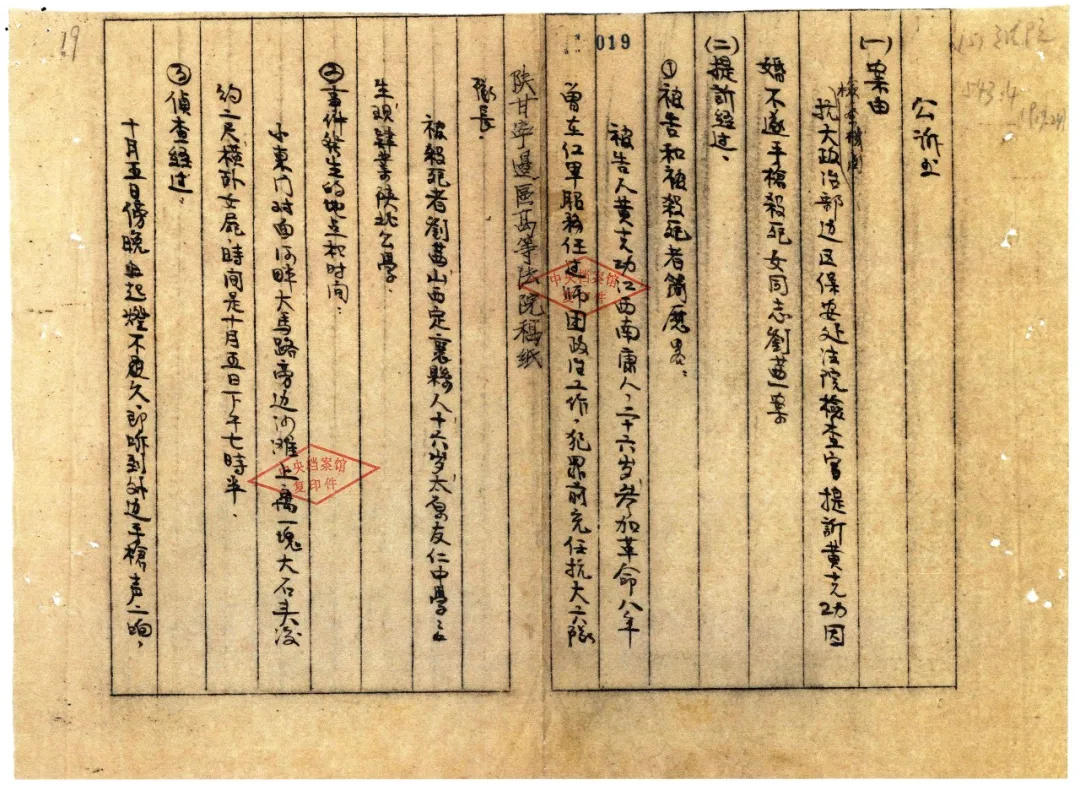 公诉书
(一)案由
检查机关
抗大政治部边区保安处法院检查官提訴黄克功因
婚不遂手槍殺死女同志劉茜一案
(二)提訴经过、
①被告和被殺死者簡歷畧、
被告人黄克功江西南康人、二十六岁参加革命八年
曾在红军服務任过师团政治工作、犯罪前充任抗大六隊
陕甘寧邊區高等法院稿纸
隊長、
被殺死者劉茜山西定襄縣人十六岁太原友仁中學学
生现肄業陕北公學、
②事件發生的地点和时间:
小東门对面河畔大馬路旁边沙滩上离一塊大石头凌
约二尺横卧女屍、時间是十月五日下午七時半、
③偵查经过、
十月五日傍晚点起燈不更久、即听到外边手槍声二响、
019
19
中央档案馆
复印件
中央档案馆
复印件